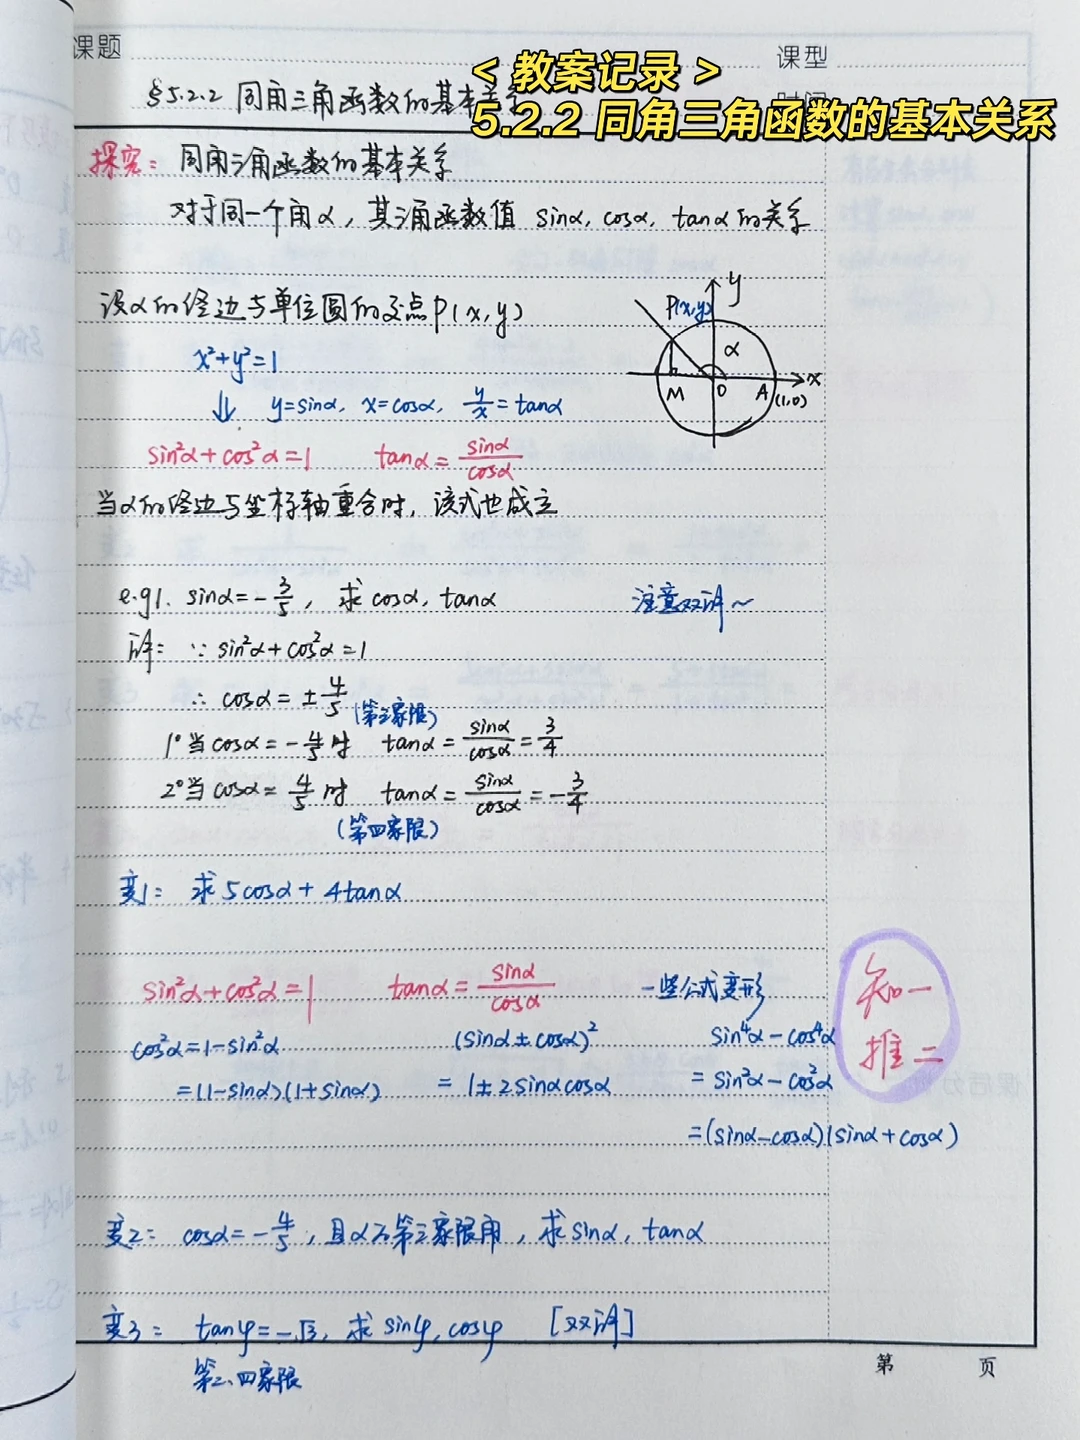 课题
课型
<教案记录>
5.2.2 同角三角函数的基本关系
§5.2.2 同角三角函数的基本关系
探究：同角三角函数的基本关系
对于同一个角α，其三角函数值 sinα, cosα, tanα的关系
设α的终边与单位圆的交点P(x,y)
x²+y²=1
⇓ y=sinα, x=cosα, y/x=tanα
sin²α+cos²α=1 tanα=sinα/cosα
y
P(x,y)
α
M O A x
(1,0)
当α的终边与坐标轴重合时，该式也成立
e.g1. sinα=-3/5, 求cosα, tanα 注意双解~
解：∵ sin²α+cos²α=1
∴ cosα=±4/5
(第三象限)
1°当cosα=-4/5时 tanα=sinα/cosα=3/4
2°当cosα=4/5时 tanα=sinα/cosα=-3/4
(第四象限)
变1：求5cosα+4tanα
sin²α+cos²α=1 tanα=sinα/cosα 一些公式变形
知一
推二
cos²α=1-sin²α (sinα±cosα)² sin⁴α-cos⁴α
=(1-sinα)(1+sinα) =1±2sinαcosα =sin²α-cos²α
=(sinα-cosα)(sinα+cosα)
变2：cosα=-4/5, 且α为第三象限角, 求sinα, tanα
变3：tanφ=-√3, 求sinφ, cosφ [双解]
第二、四象限
第 页